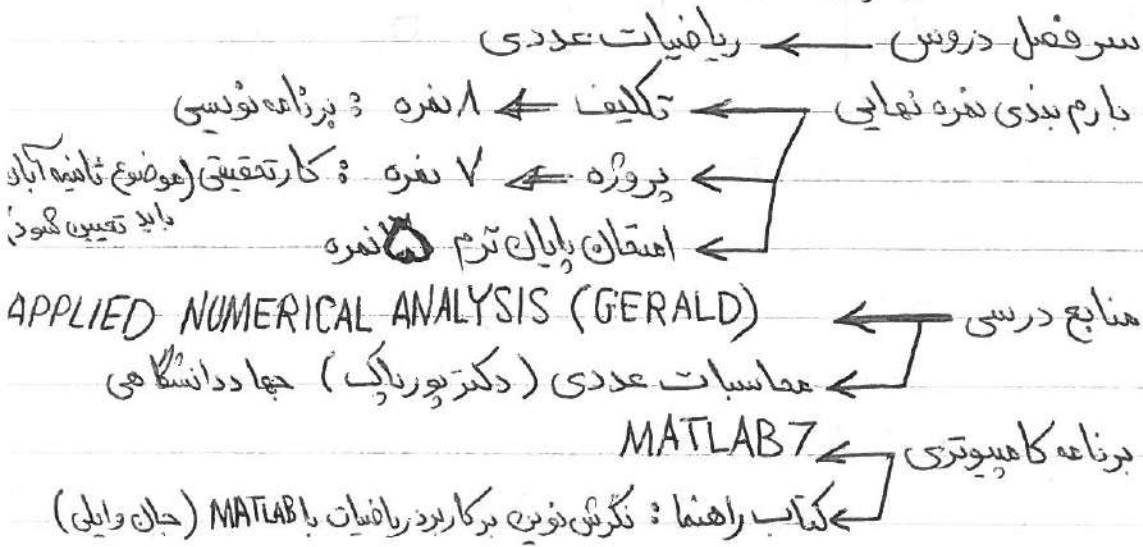 سر فصل دروس ← ریاضیات عددی
بارم بندی نمره نهایی ← تکلیف ← ۸ نمره : برنامه نویسی
← پروژه ← ۷ نمره : کار تحقیقی (موضوع تا نیمه آبان
باید تعیین شود)
← امتحان پایان ترم ۵ نمره
منابع درسی ← APPLIED NUMERICAL ANALYSIS (GERALD)
← محاسبات عددی (دکتر پورپاک) جهاد دانشگاهی
برنامه کامپیوتری ← MATLAB 7
← کتاب راهنما : نگرش نوین بر کاربرد ریاضیات با MATLAB (جان وایلی)